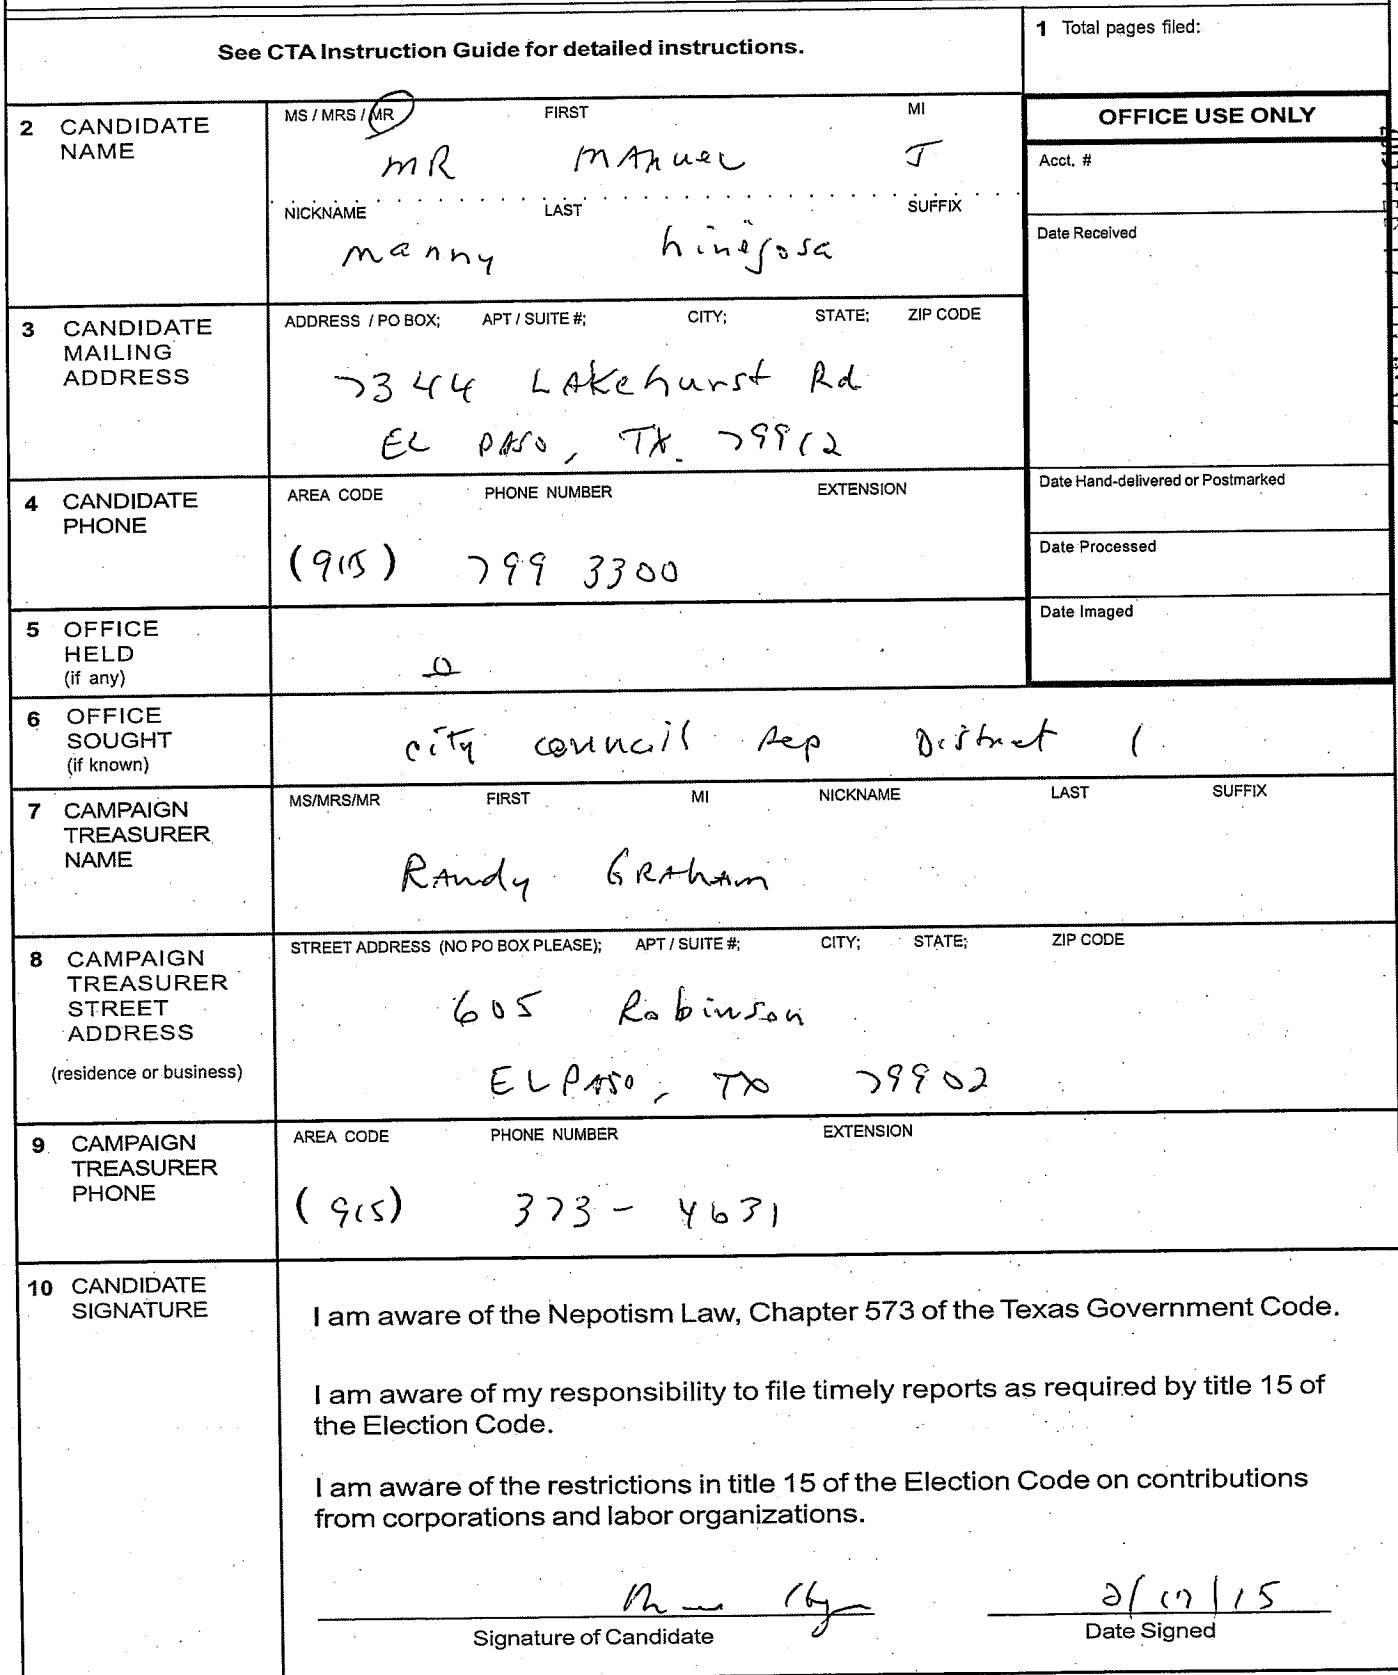 See CTA Instruction Guide for detailed instructions.
1 Total pages filed:
2 CANDIDATE NAME
MS / MRS / MR FIRST MI
MR MANUEL J
NICKNAME LAST SUFFIX
Manny hinojosa
OFFICE USE ONLY
Acct. #
Date Received
3 CANDIDATE MAILING ADDRESS
ADDRESS / PO BOX; APT / SUITE #; CITY; STATE; ZIP CODE
7344 LAKehurst Rd
EL PASO, TX. 79912
Date Hand-delivered or Postmarked
4 CANDIDATE PHONE
AREA CODE PHONE NUMBER EXTENSION
(915) 799 3300
Date Processed
Date Imaged
5 OFFICE HELD (if any)
0
6 OFFICE SOUGHT (if known)
city council Rep District 1
7 CAMPAIGN TREASURER NAME
MS/MRS/MR FIRST MI NICKNAME LAST SUFFIX
RAndy GRAham
8 CAMPAIGN TREASURER STREET ADDRESS
(residence or business)
STREET ADDRESS (NO PO BOX PLEASE); APT / SUITE #; CITY; STATE; ZIP CODE
605 Robinson
EL PASO, TX 79902
9 CAMPAIGN TREASURER PHONE
AREA CODE PHONE NUMBER EXTENSION
(915) 373 - 4631
10 CANDIDATE SIGNATURE
I am aware of the Nepotism Law, Chapter 573 of the Texas Government Code.
I am aware of my responsibility to file timely reports as required by title 15 of
the Election Code.
I am aware of the restrictions in title 15 of the Election Code on contributions
from corporations and labor organizations.
2/17/15
Signature of Candidate Date Signed